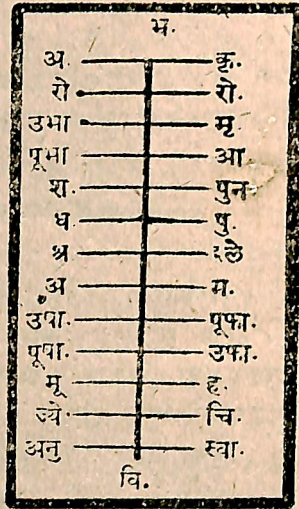 भ.
अ. कृ.
रो रो.
उभा मृ
पूभा आ.
श. पुन
ध पु.
श्र श्ले
अ म.
उषा. पूफा.
पूषा. उफा.
मू ह.
ज्ये चि.
अनु स्वा.
वि.